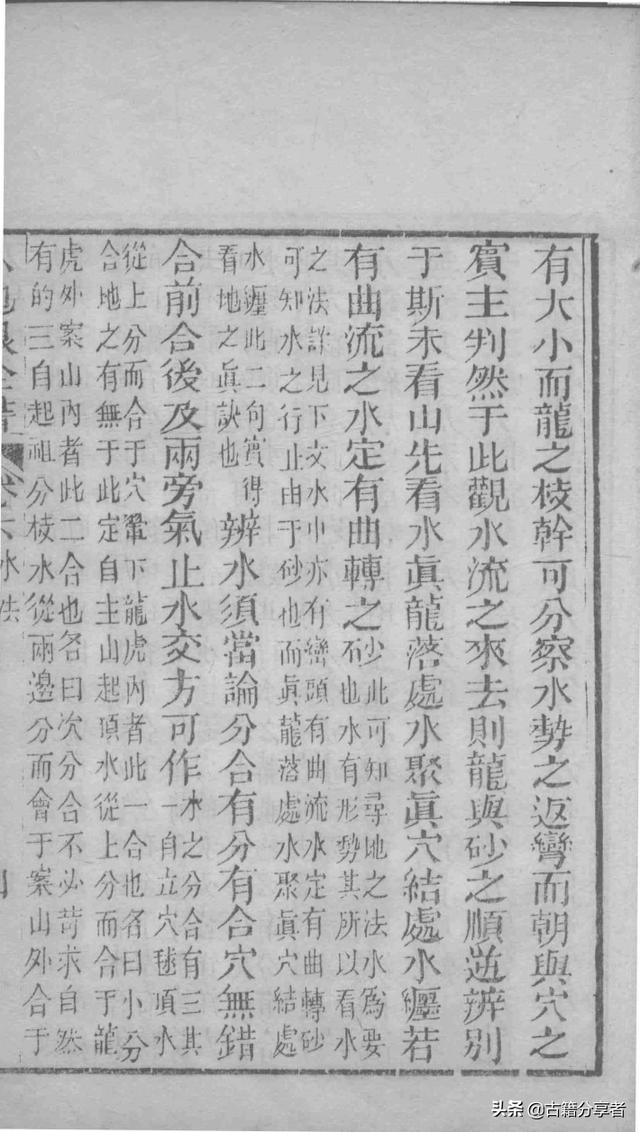 有大小而龍之枝幹可分察水勢之返彎而朝與穴之
賓主判然于此觀水流之來去則龍與砂之順逆辨別
于斯未看山先看水眞龍落處水聚眞穴結處水纏若
有曲流之水定有曲轉之砂
此可知尋地之法水爲要
也水有形勢其所以看水
之法詳見下文水中亦有彎頭有曲流水定有曲轉砂
可知水之行止由于砂也而眞龍落處水聚眞穴結處
水纏此二句實得
看地之眞訣也
辨水須當論分合有分有合穴無錯
合前合後及兩旁氣止水交方可作
水之分合有三其
一自立穴毬頂水
從上分而合于穴暈下龍虎內者此一合也名曰小分
合地之有無于此定自主山起頂水從上分而合于龍
虎外案山內者此二合也名曰次分合不必苛求自然
有的三自起祖分枝水從兩邊分而會于案山外合于
頭条 @古籍分享者